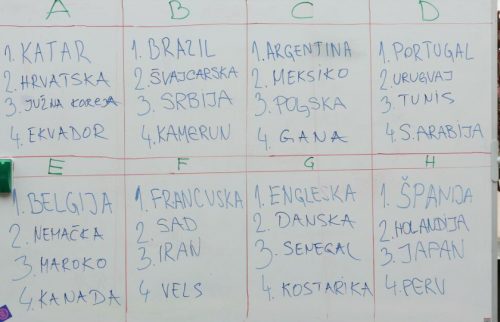 A B C D
1. KATAR
2. HRVATSKA
3. JUŽNA KOREJA
4. EKVADOR
1. BRAZIL
2. ŠVAJCARSKA
3. SRBIJA
4. KAMERUN
1. ARGENTINA
2. MEKSIKO
3. POLJSKA
4. GANA
1. PORTUGAL
2. URUGVAJ
3. TUNIS
4. S. ARABIJA
E F G H
1. BELGIJA
2. NEMAČKA
3. MAROKO
4. KANADA
1. FRANCUSKA
2. SAD
3. IRAN
4 VELS
1. ENGLESKA
2. DANSKA
3. SENEGAL
4. KOSTARIKA
1. ŠPANIJA
2. HOLANDIJA
3. JAPAN
4. PERU